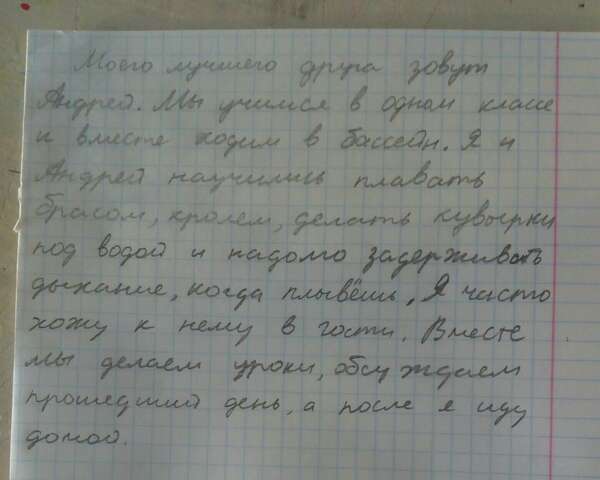 Моего лучшего друга зовут
Андрей. Мы учимся в одном классе
и вместе ходим в бассейн. Я и
Андрей научились плавать
брасом, кролем, делать кувырки
под водой и надолго задерживать
дыхание, когда плывёшь. Я часто
хожу к нему в гости. Вместе
мы делаем уроки, обсуждаем
прошедший день, а после я иду
домой.